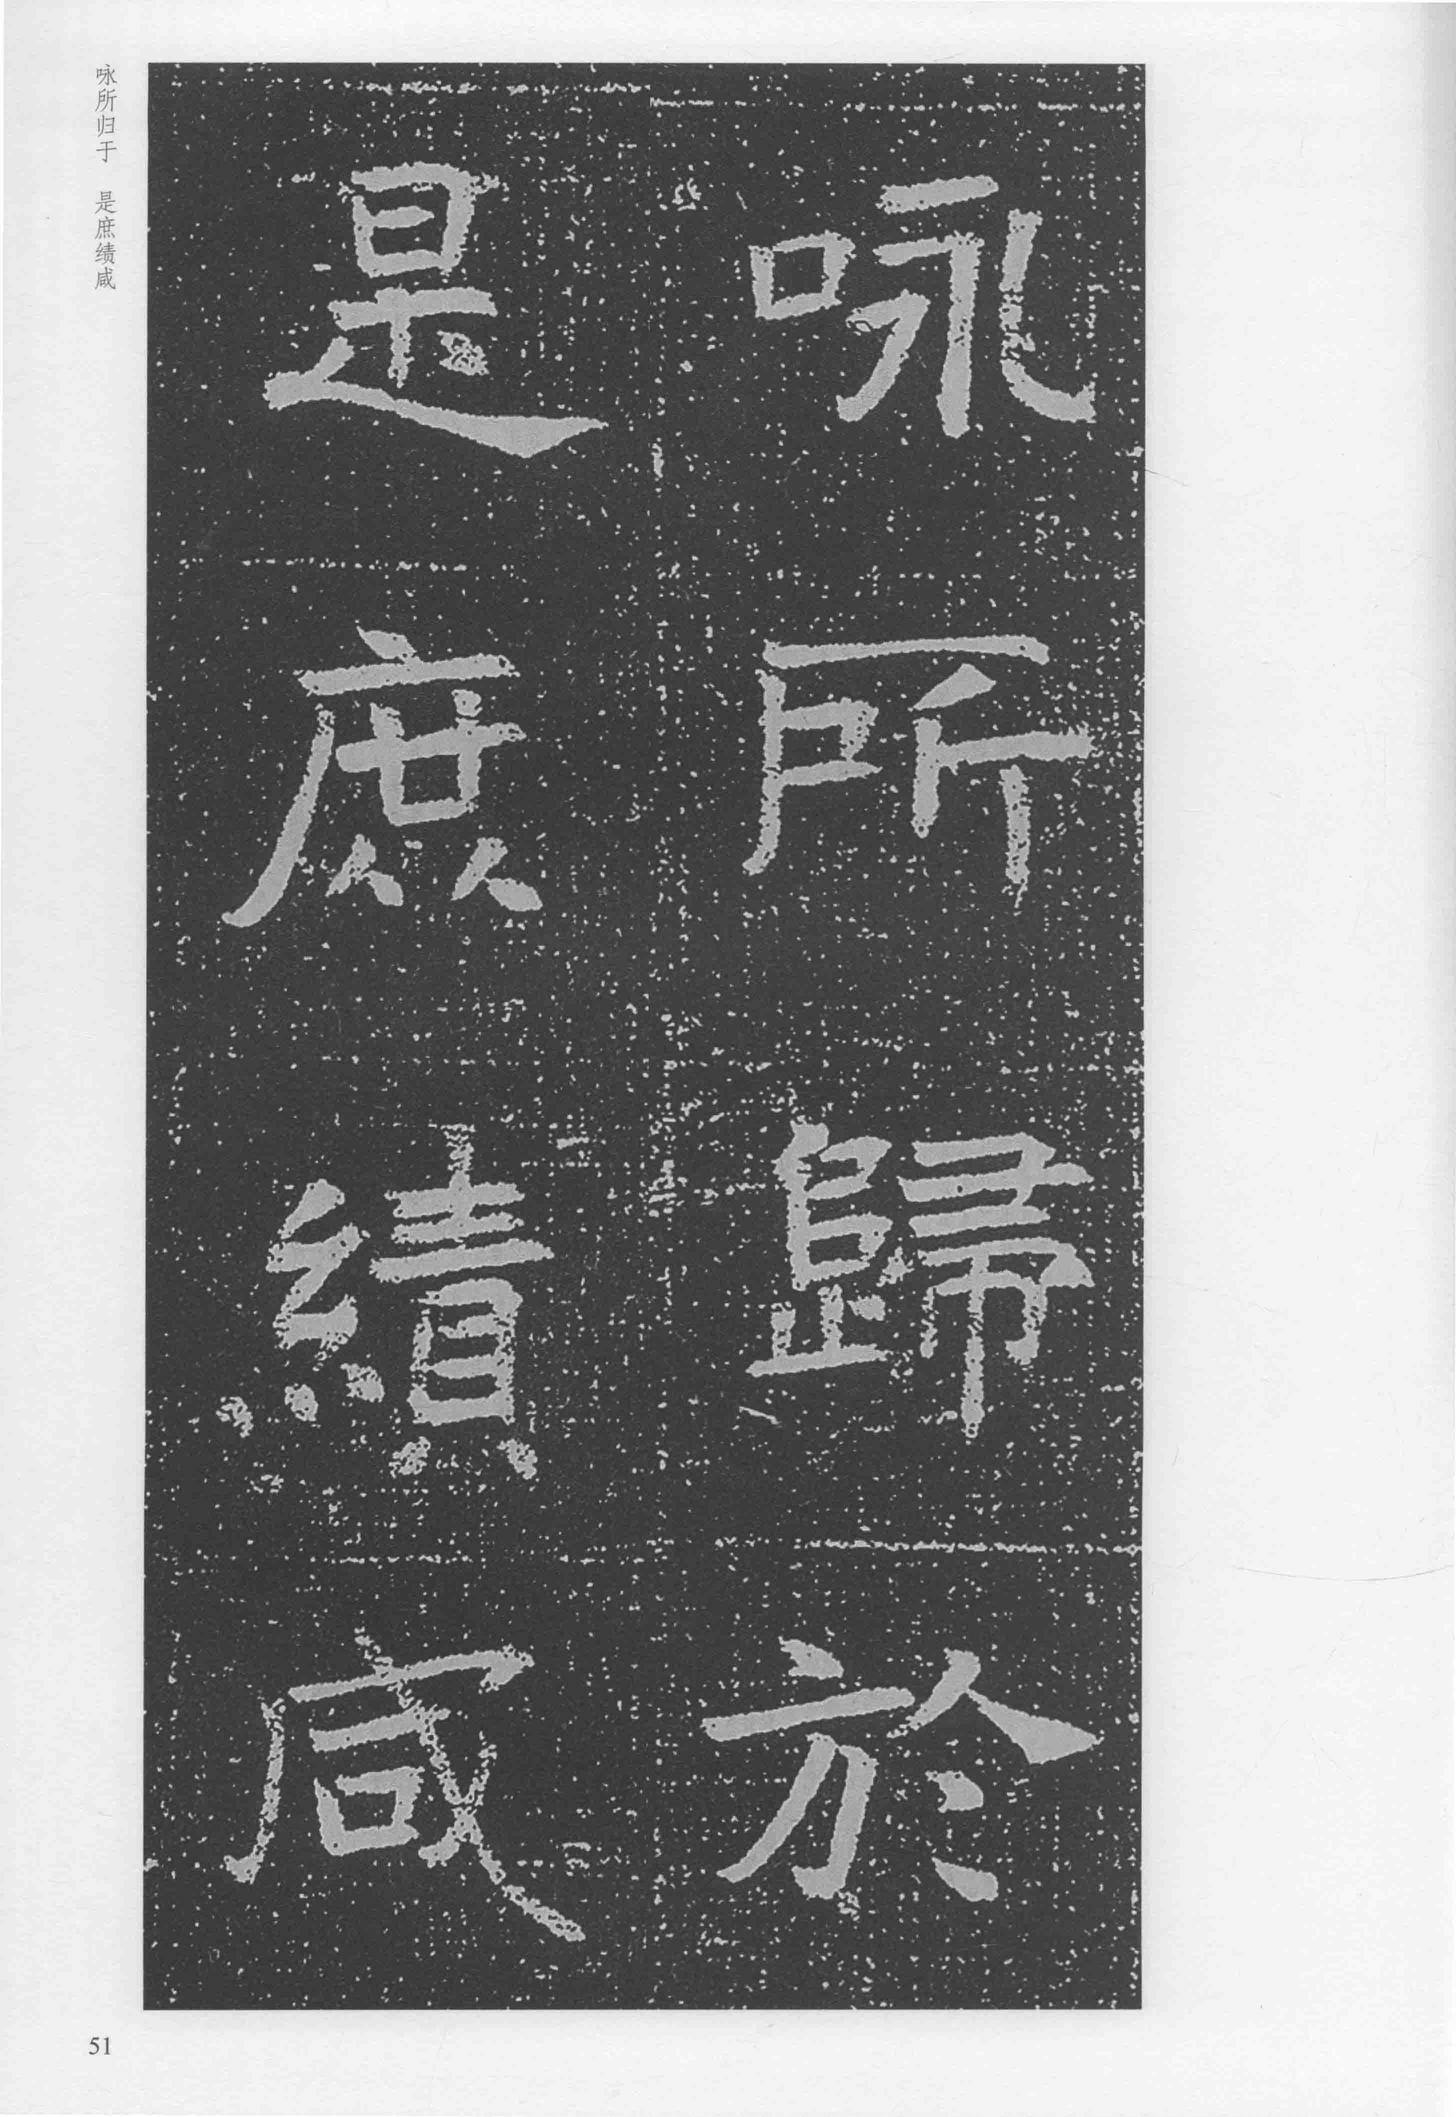 咏所歸於
是庶績咸
咏所归于 是庶绩咸
51